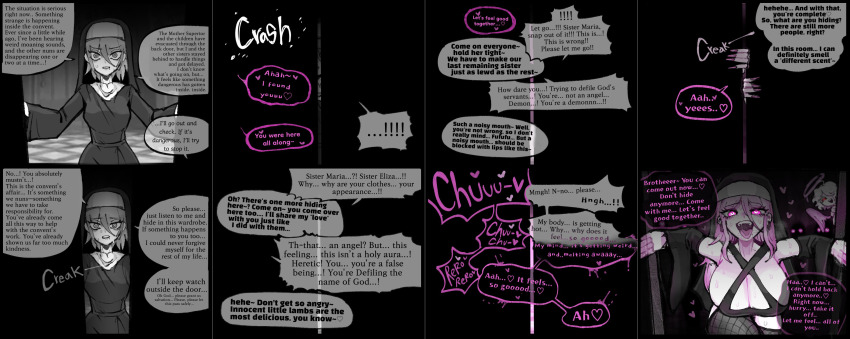 The situation is serious
right now.. Something
strange is happening
inside the convent.
Ever since a little while
ago, I've been hearing
weird moaning sounds,
and the other nuns are
disappearing one or
two at a time...!
The Mother Superior
and the children have
evacuated through the
back door, but I and the
other sisters stayed
behind to handle things
and got delayed.
I don't know
what's going on, but..
It feels like something
dangerous has gotten
inside. inside
...I'll go out and
check. If it's
dangerous, I'll try
to stop it.
No...! You absolutely
mustn't...!
This is the convent's
affair... It's something
we nuns—something
we have to take
responsibility for.
You've already come
all this way to help
with the convent's
work. You've already
shown us far too much
kindness.
So please....
just listen to me and
hide in this wardrobe.
If something happens
to you too...
I could never forgive
myself for the
rest of my life...
I'll keep watch
outside the door...
Creak
Crash
Ahah~
I found
youuu♡
You were here
all along~
. . . !!!!
Sister Maria...?! Sister Eliza...?!
Why... why are your clothes... your
appearance...!!
Oh? There's one more hiding
here~? Come on~ you come over
here too... I'll share my 'love'
with you just like
I did with them..
Th-that... an angel? But... this
feeling... this isn't a holy aura...!
Heretic! You... you're a false
being...! You're Defiling the
name of God...!
hehe~ Don't get so angry~
Innocent little lambs are the
most delicious, you know~♡
Let's feel good
together..♡
!!!!
Let go...!!! Sister Maria,
snap out of it!! This is...!
This is wrong!!
Please let me go!!
Come on everyone~
hold her tight~
We have to make our
last remaining sister
just as lewd as the rest~
How dare you...! Trying to defile God's
servants...! You're... not an angel...
Demon...! You're a demonnn...!!
Such a noisy mouth~ Well,
you're not wrong, so I don't
really mind.. Fufufu.. But a
noisy mouth... should be
blocked with lips like this~
Chuuu~
Mmgh! N-no... please...
Hngh...!!
Chu~
Chu~
My body... is getting
hot... Why... why does it
feel... so goooood
My mind... is getting weird
and.. melting awaaay...
Aah... It feels...
so gooood....♡
Ah♡
hehehe.. And with that,
you're complete♡
So, what are you hiding?
There are still more
people, right?
In this room... I can
definitely smell
a 'different scent'~
Creak
Aah..
yeees..♡
Brotheeer~ You can
come out now...♡
Don't hide
anymore... Come
with me.. Let's feel
good together..
Haa..♡ I can't...
can't hold back
anymore..♡
Right now...
hurry... take it
off..
Let me feel... all of
you..